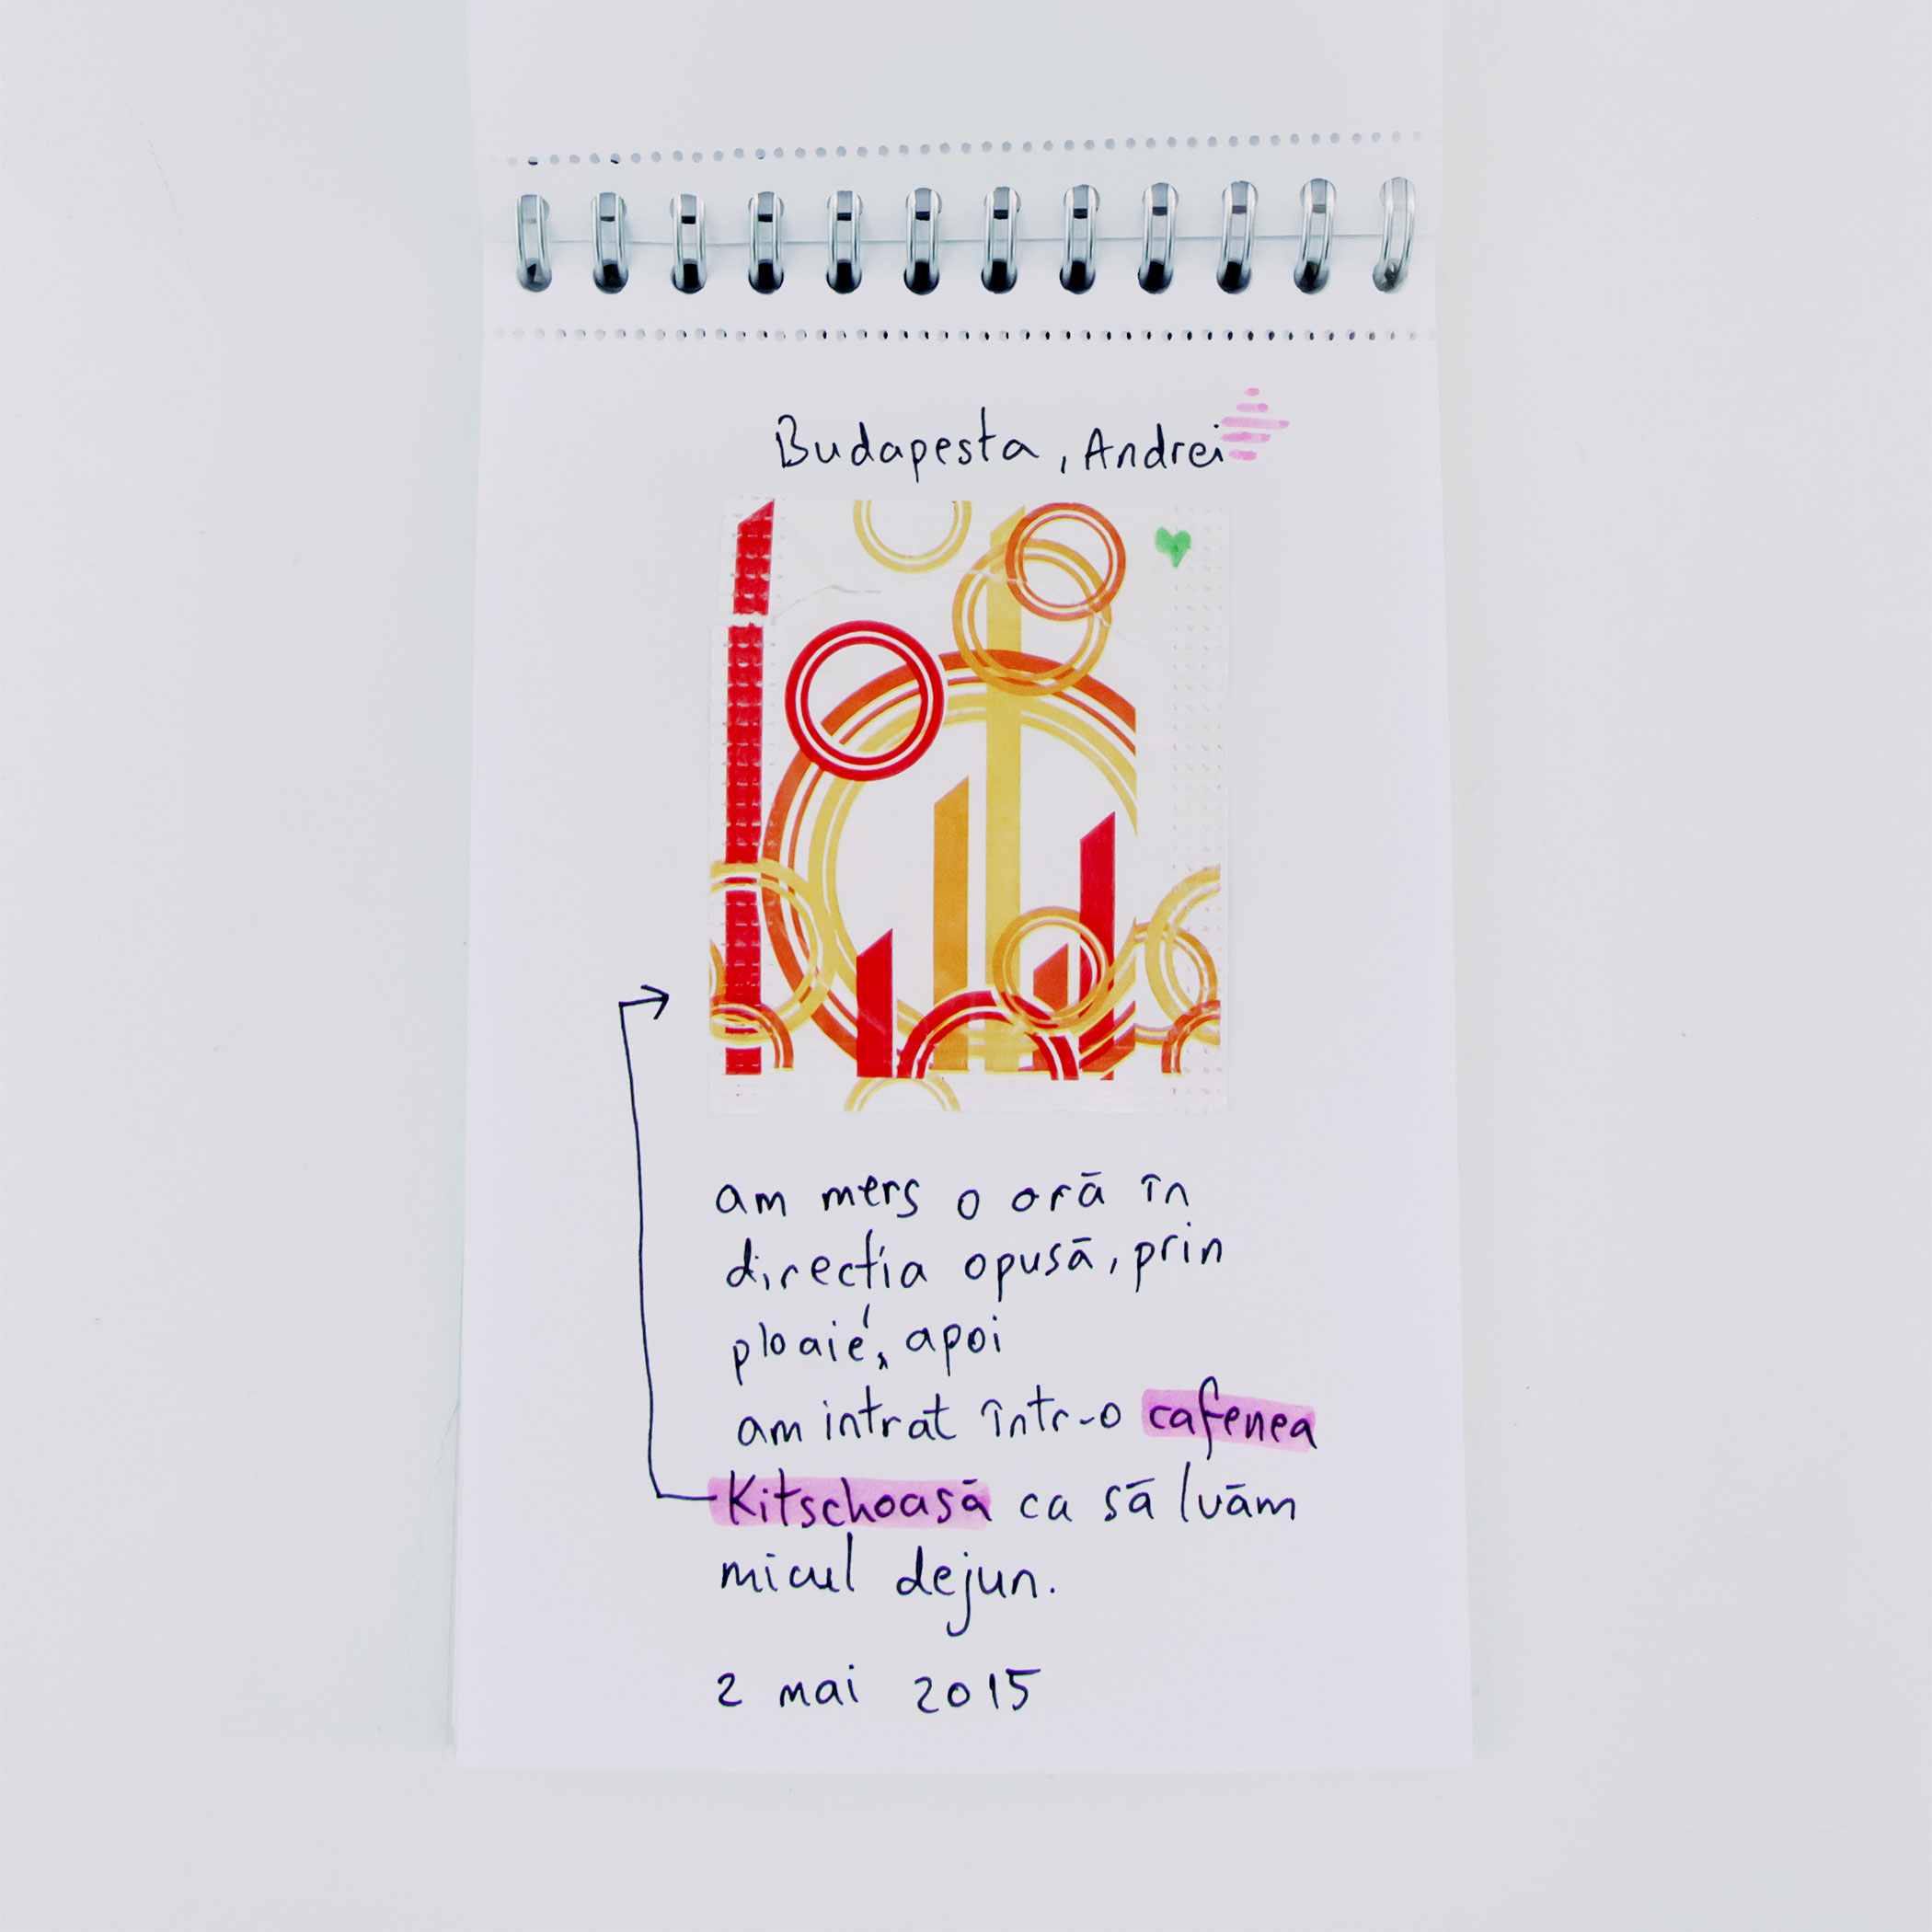 Budapesta, Andrei
am mers o oră în
direcția opusă, prin
ploaie, apoi
am intrat într-o cafenea
Kitschoasă ca să luăm
micul dejun.
2 mai 2015